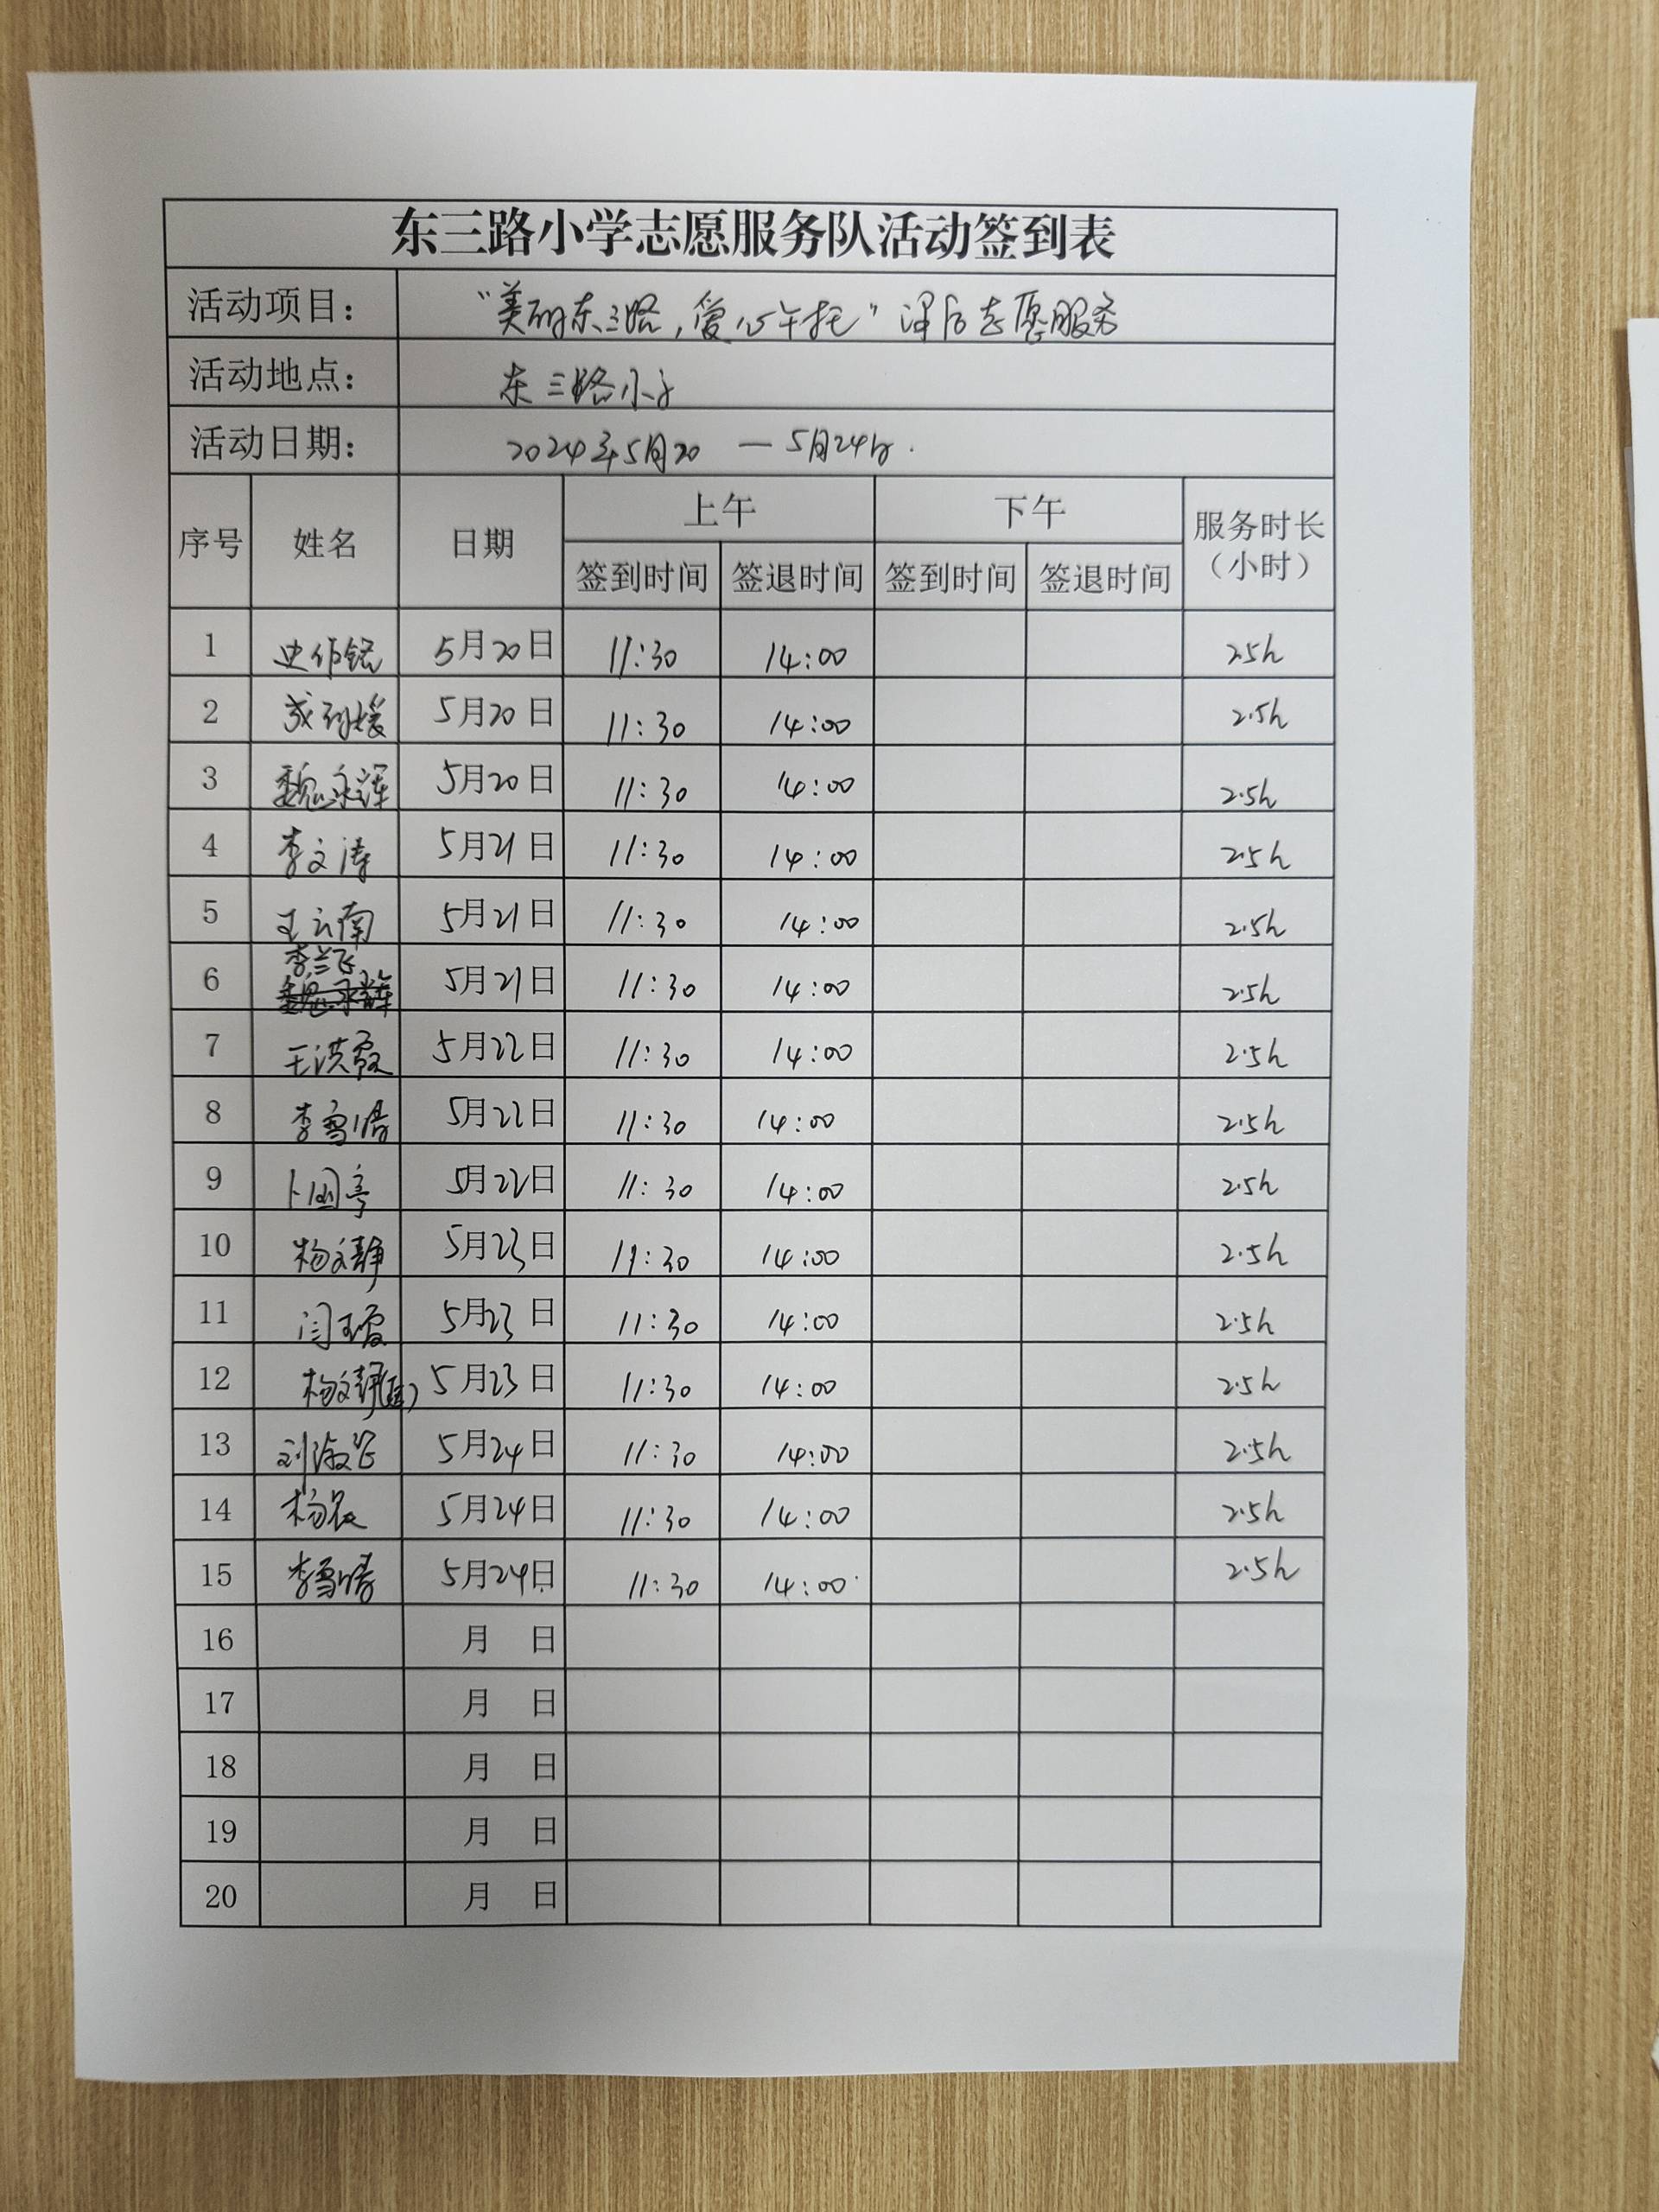 东三路小学志愿服务队活动签到表
活动项目: “美丽东三路,爱心午托”课后志愿服务
活动地点: 东三路小学
活动日期: 2024年5月20 — 5月24日.
序号 姓名 日期 上午 下午 服务时长(小时)
签到时间 签退时间 签到时间 签退时间
1 史作铭 5月20日 11:30 14:00 2.5h
2 5月20日 11:30 14:00 2.5h
3 魏永泽 5月20日 11:30 14:00 2.5h
4 李文涛 5月21日 11:30 14:00 2.5h
5 王云南 5月21日 11:30 14:00 2.5h
6 李兰飞 5月21日 11:30 14:00 2.5h
7 王洪霞 5月22日 11:30 14:00 2.5h
8 李雪倩 5月22日 11:30 14:00 2.5h
9 5月22日 11:30 14:00 2.5h
10 杨文静 5月23日 11:30 14:00 2.5h
11 闫玉霞 5月23日 11:30 14:00 2.5h
12 杨文静 5月23日 11:30 14:00 2.5h
13 5月24日 11:30 14:00 2.5h
14 5月24日 11:30 14:00 2.5h
15 5月24日 11:30 14:00 2.5h
16 月 日
17 月 日
18 月 日
19 月 日
20 月 日